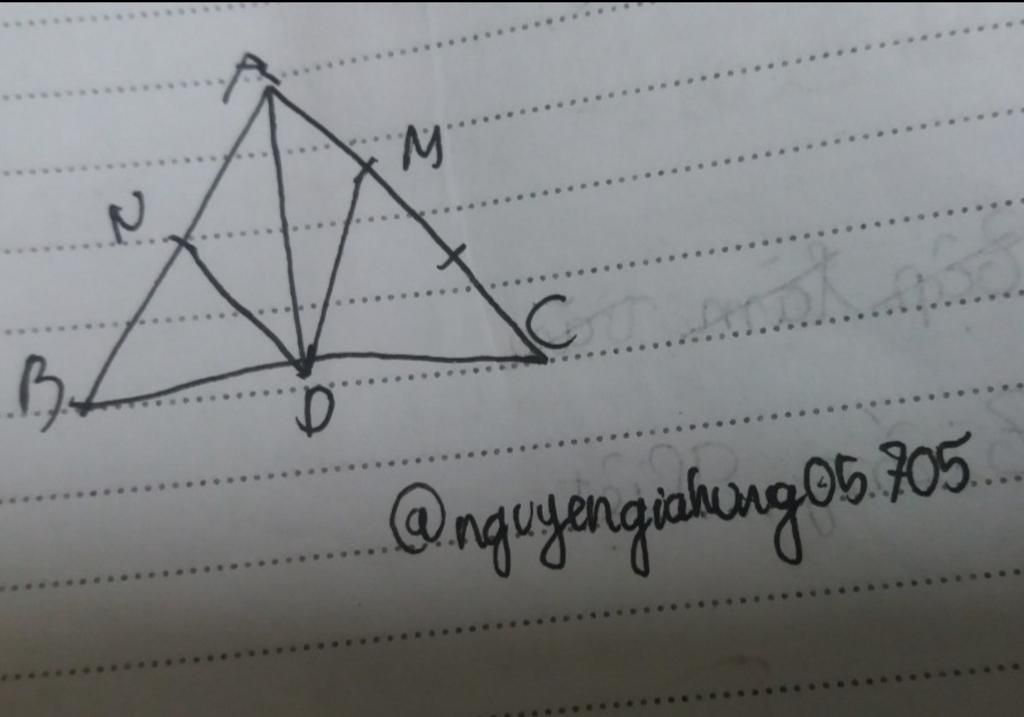 A
M
N
C
B
D
@nguyengiahung05.705